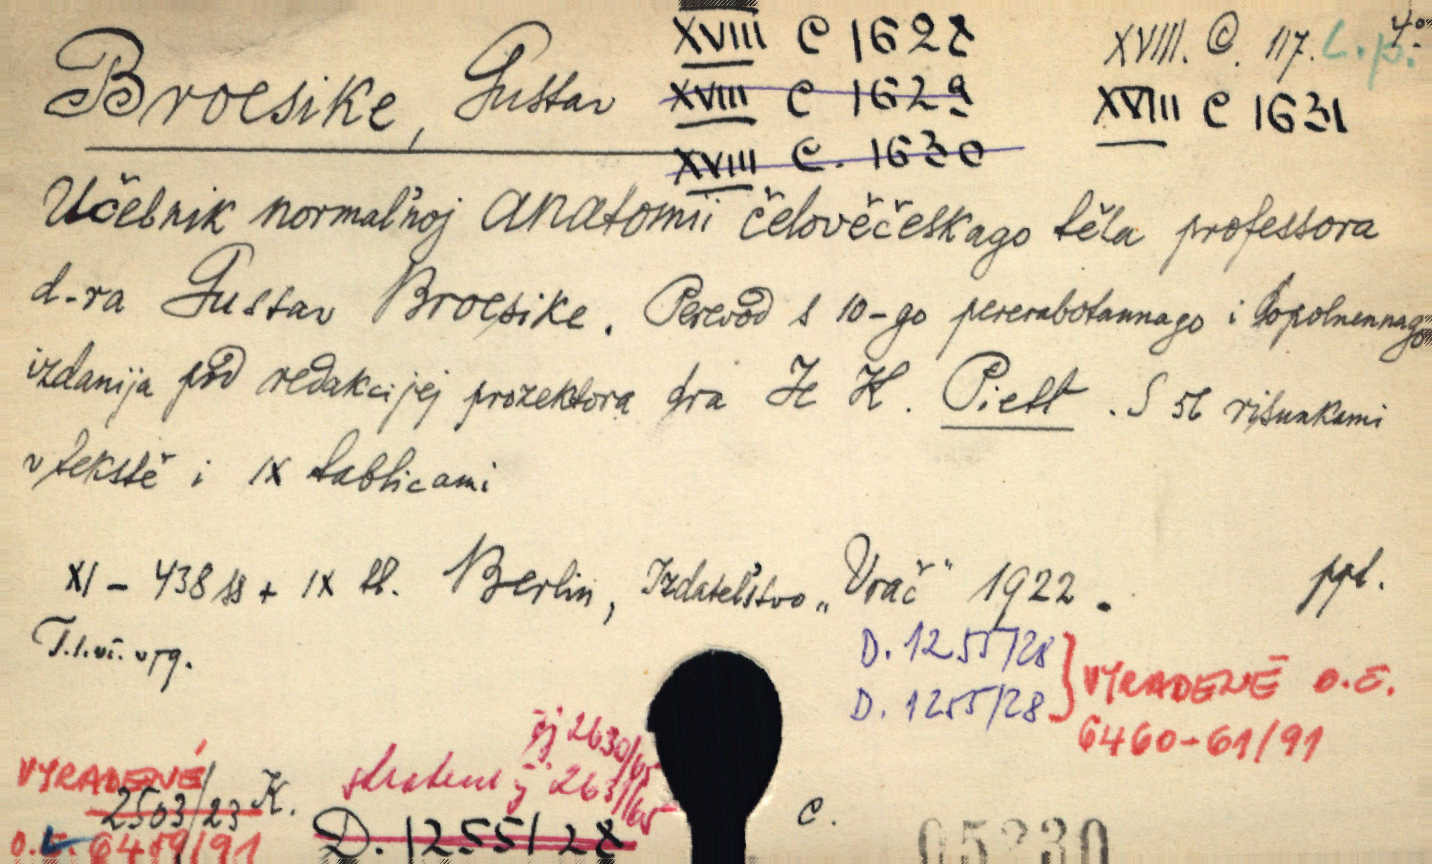 Broesike, Gustav
XVIII C 1628
XVIII C 1629
XVIII C. 1630
XVIII. C. 117. L.p. 4°
XVIII C 1631
Učebnik normal'noj anatomii čelověčeskago těla professora
d-ra Gustav Broesike. Perevod s 10-go pererabotannago i dopolnennago
izdanija pod redakcijej prozektora dra H. Piett. S 56 risunkami
v tekstě i IX tablicami
XI - 438 ss + IX tb. Berlin, Izdatel'stvo „Vrač" 1922. ppl.
D. 1255/28
D. 1255/28
VYRADENÉ O.E.
6460-61/91
VYRADENÉ
2503/23 K.
6459/91
2630/65
2631/65
D. 1255/28
C.
05230